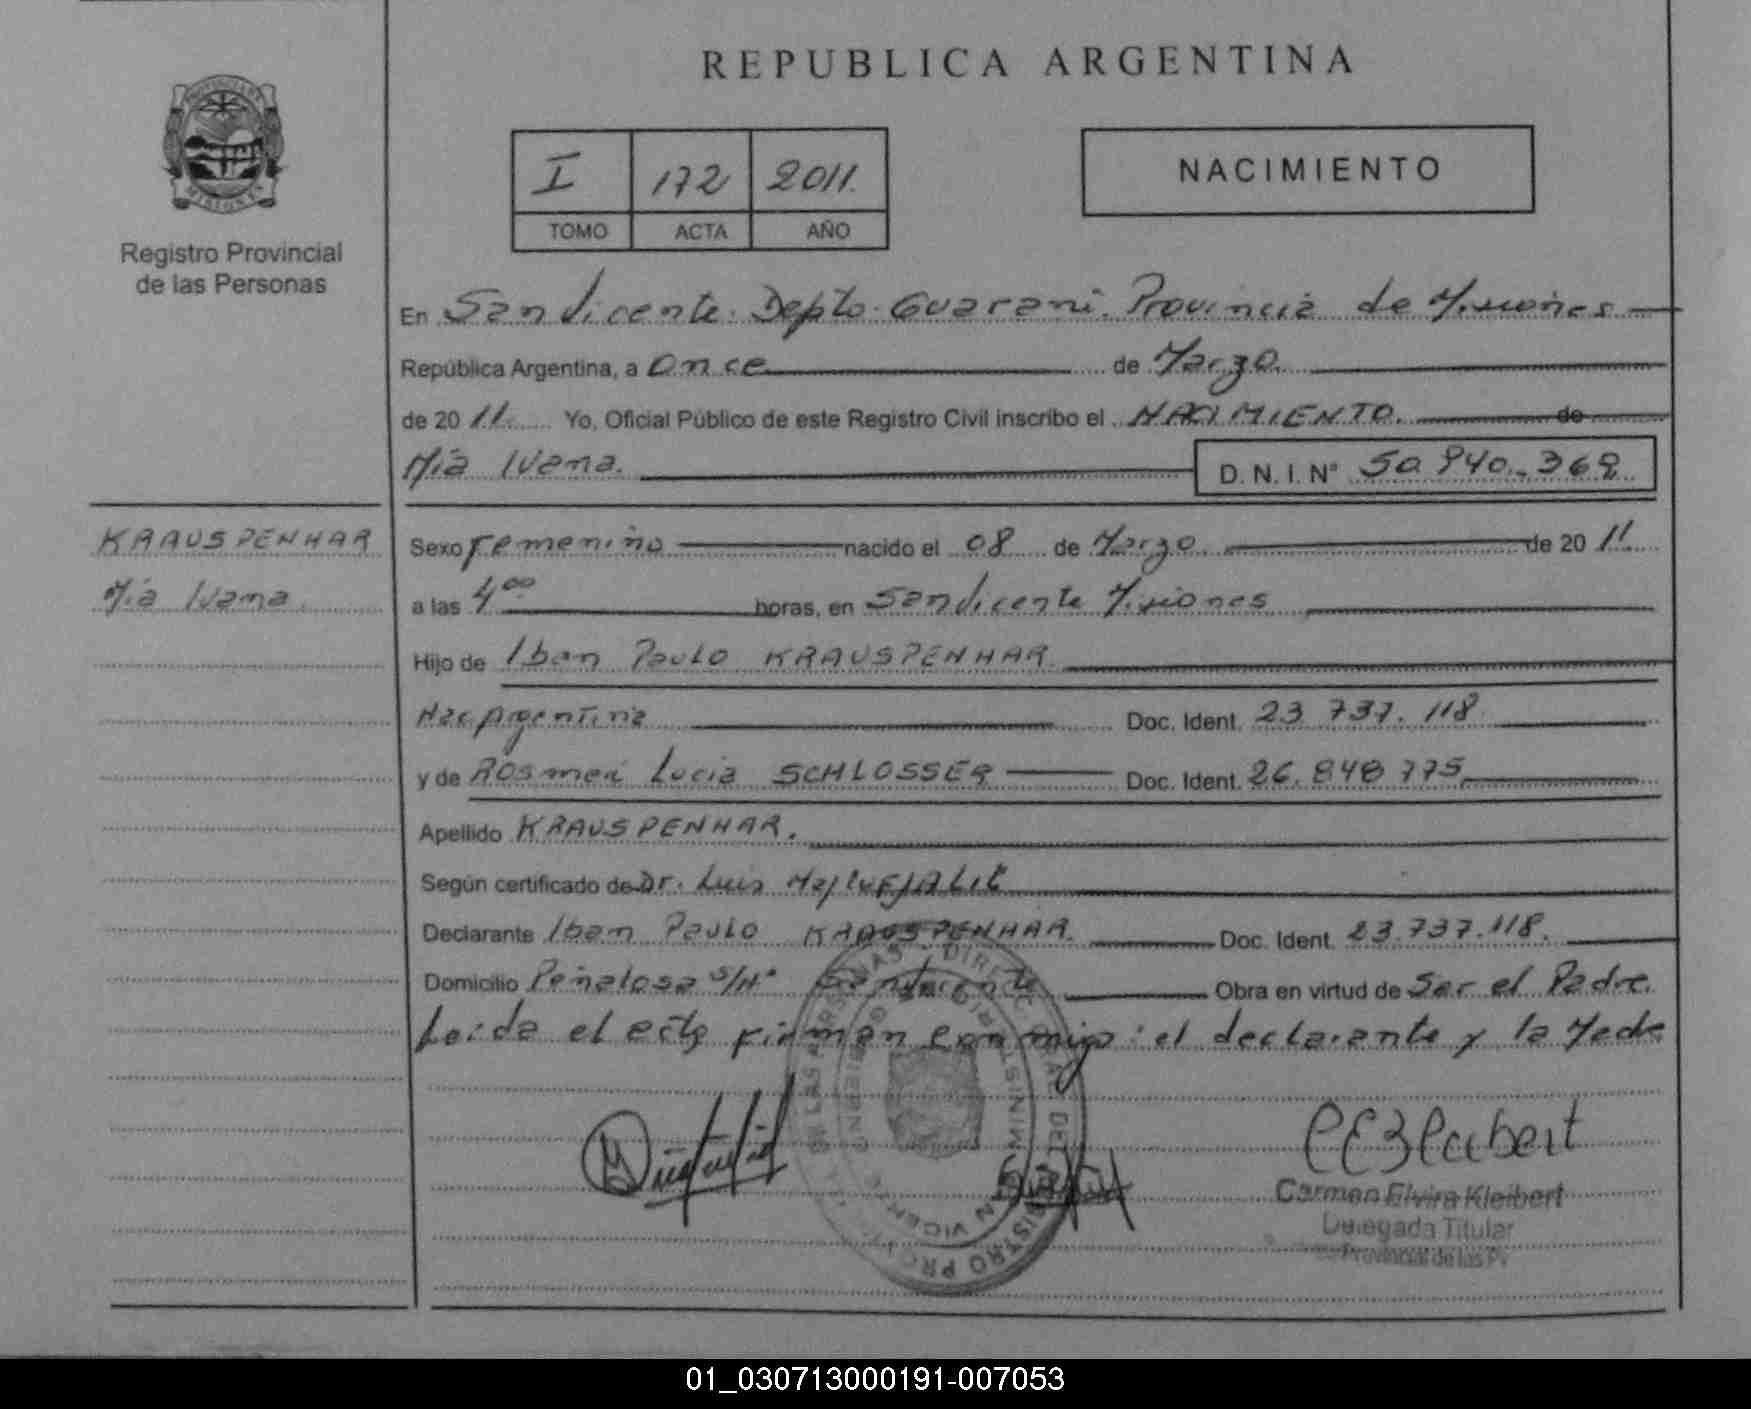 REPUBLICA ARGENTINA
I 172 2011.
TOMO ACTA AÑO
NACIMIENTO
Registro Provincial
de las Personas
En San Vicente. Depto. Guarani. Provincia de Misiones
República Argentina, a once de Marzo.
de 2011. Yo, Oficial Público de este Registro Civil inscribo el NACIMIENTO. de
Mia Ivana. D. N. I. Nº 50.940.368
KRAUSPENHAR
Mia Ivana
Sexo Femenino nacido el 08 de Marzo de 2011.
a las 4⁰⁰ horas, en San Vicente Misiones
Hijo de Iban Paulo KRAUSPENHAR.
Nac Argentina Doc. Ident. 23 737. 118
y de Rosmeri Lucia SCHLOSSER Doc. Ident. 26.848 775
Apellido KRAUSPENHAR.
Según certificado de Dr. Luis
Declarante Iban Paulo KRAUSPENHAR. Doc. Ident. 23.737.118.
Domicilio Peñalosa S/Nº San Vicente Obra en virtud de Ser el Padre.
Leida el acta firman conmigo: el declarante y la Madre
Carmen Elvira Kleibert
Delegada Titular
Provincial de las P
01_030713000191-007053